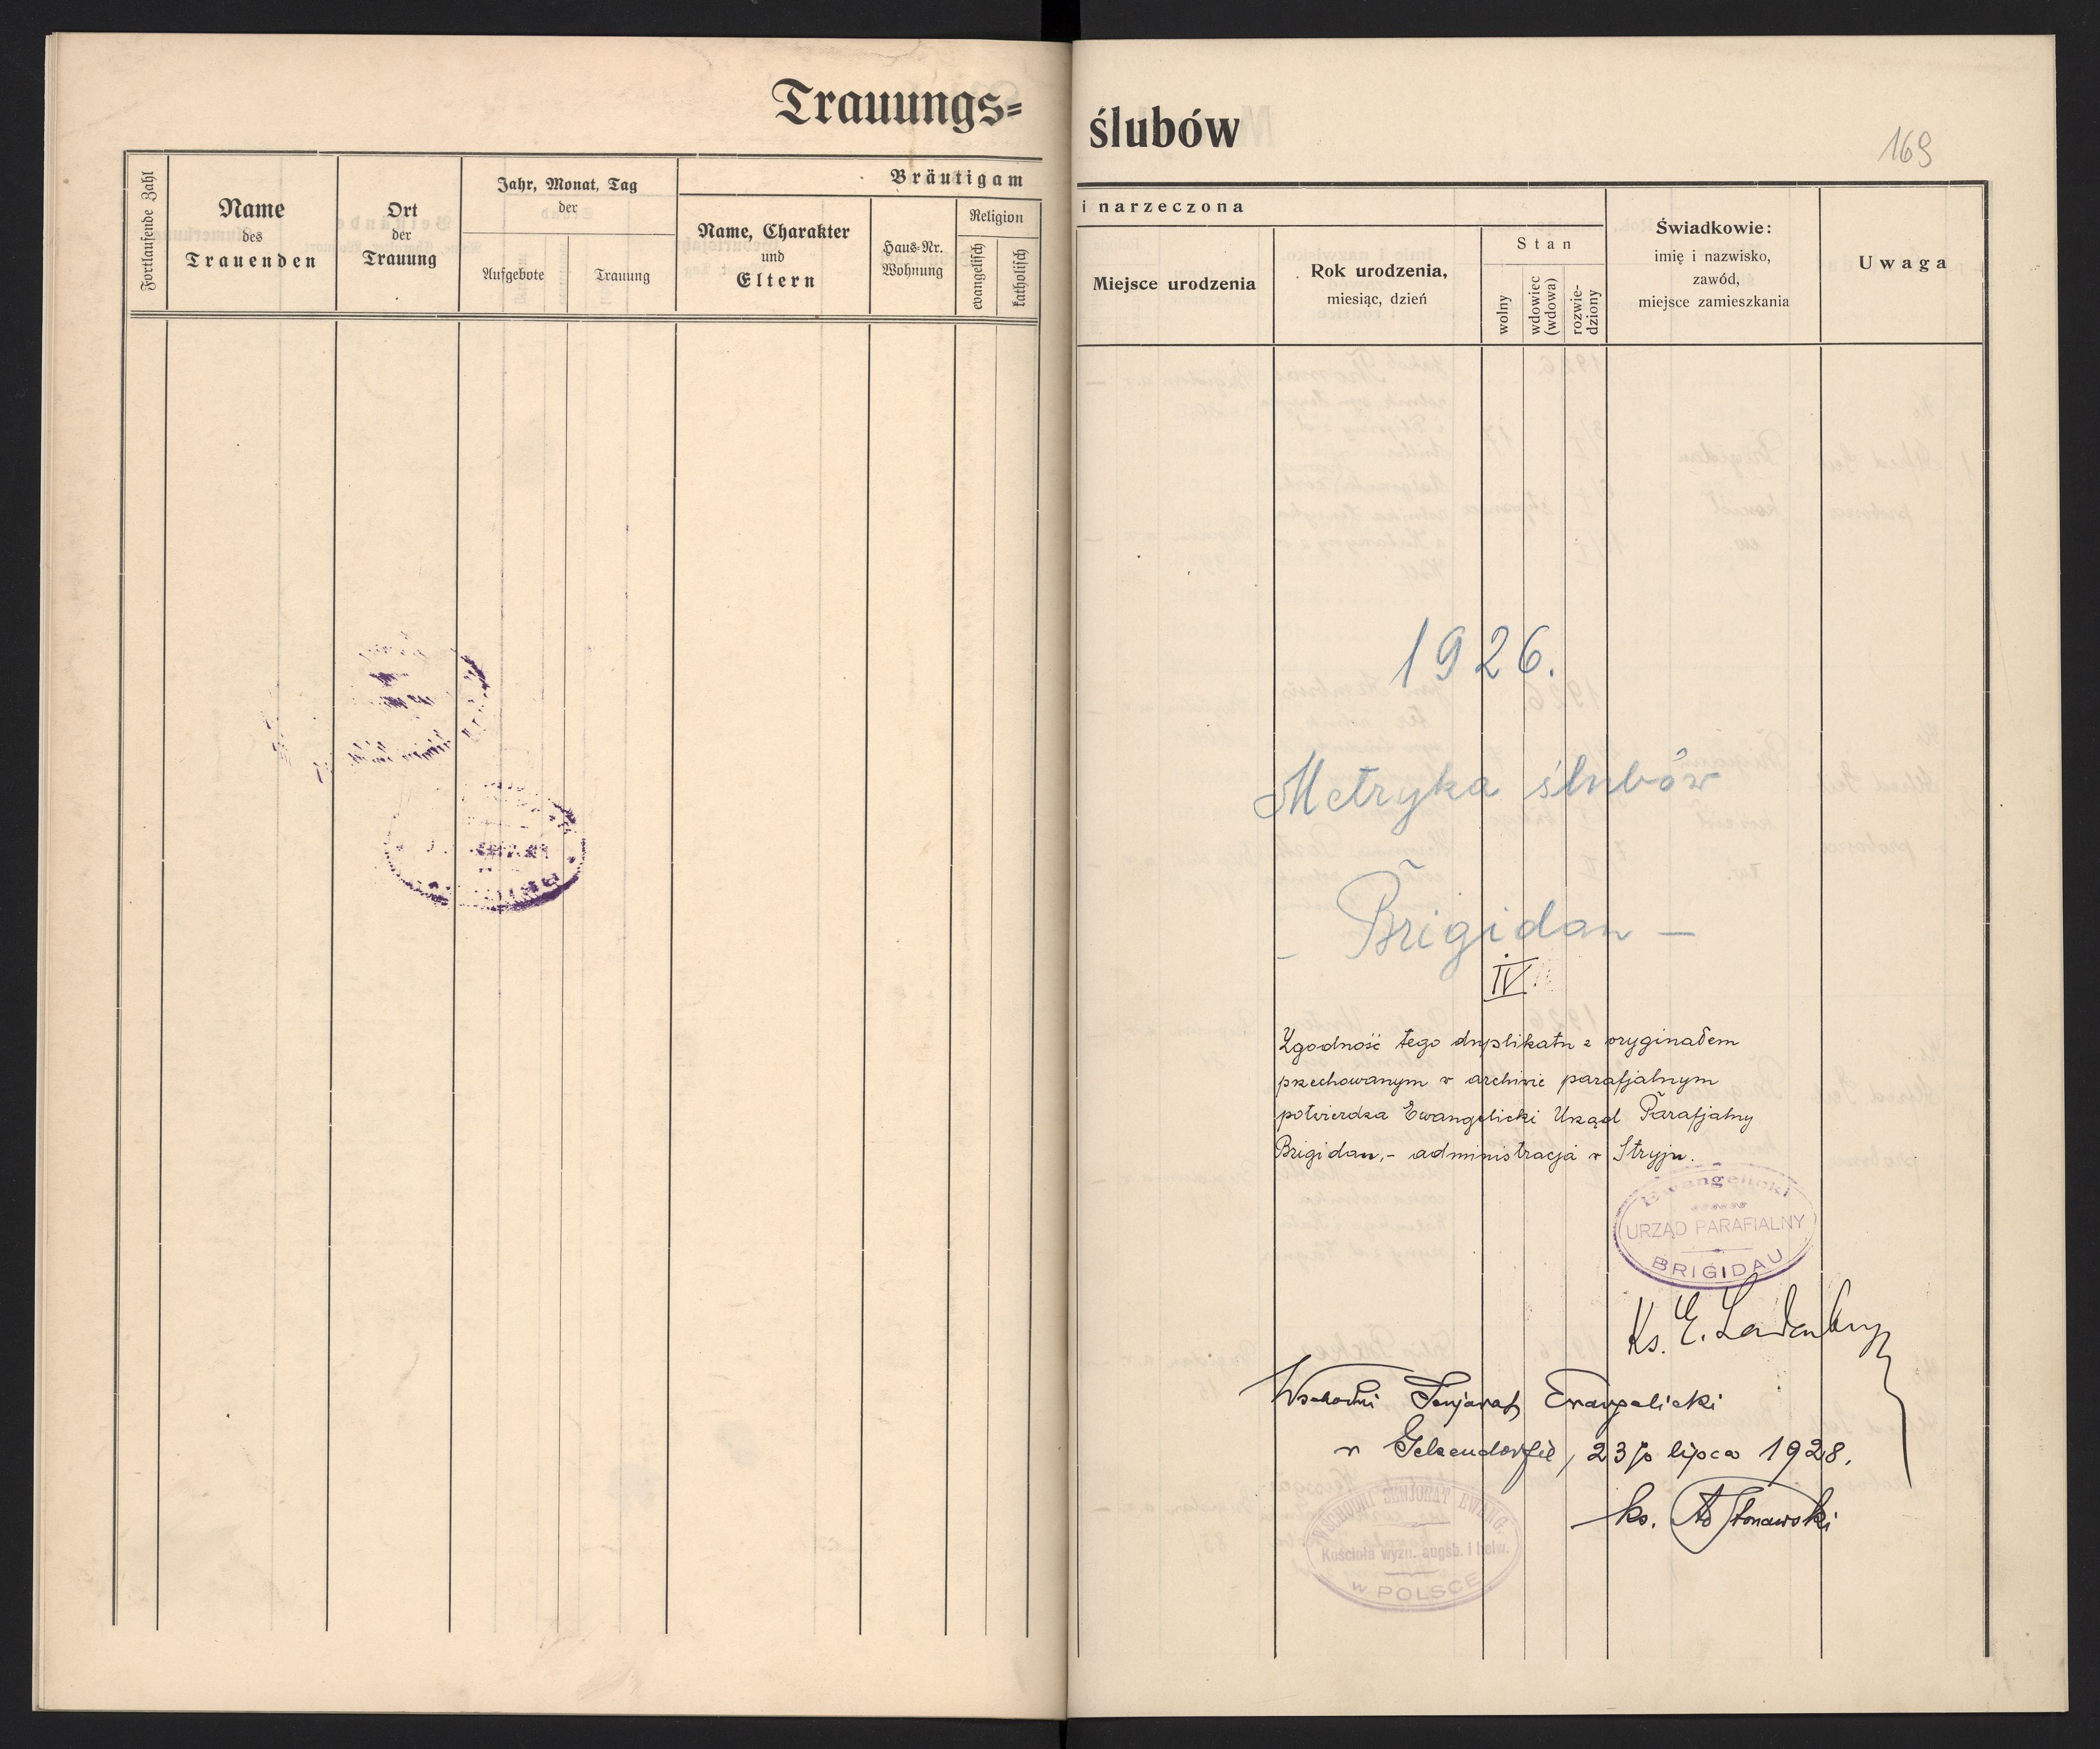 Trauungs=
Fortlaufende Zahl
Name
des
Trauenden
Ort
der
Trauung
Jahr, Monat, Tag
der
Aufgebote
Trauung
Bräutigam
Name, Charakter
und
Eltern
Haus-Nr.
Wohnung
Religion
evangelisch
katholisch
ślubów
169
i narzeczona
Miejsce urodzenia
Rok urodzenia,
miesiąc, dzień
Stan
wolny
wdowiec
(wdowa)
rozwie-
dziony
Świadkowie:
imię i nazwisko,
zawód,
miejsce zamieszkania
Uwaga
1926.
Metryka ślubów
– Brigidau –
IV.
Zgodność tego duplikatu z oryginałem
przechowanym w archiwie parafjalnym
potwierdza Ewangelicki Urząd Parafjalny
Brigidau,- administracja w Stryju.
Ewangelicki
URZĄD PARAFIALNY
BRIGIDAU
Ks. E.
Wschodni Senjorat Ewangelicki
w Gelsendorfie, 23go lipca 1928.
WSCHODNI SENJORAT EWANG.
Kościoła wyzn. augsb. i helw.
w POLSCE
ks.